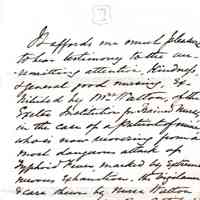 It affords me much pleasure
to bear testimony to the un-
remitting attention, Kindness,
& general good nursing, Ex-
hibited by Mrs Watton, of the
Exeter Institution for Trained Nurses,
in the case of a Patient of mine
who is now recovering from a
most dangerous attack of
Typhoid Fever marked by Extreme
nervous Exhaustion. The Vigilance
& Care shewn by Nurse Watton